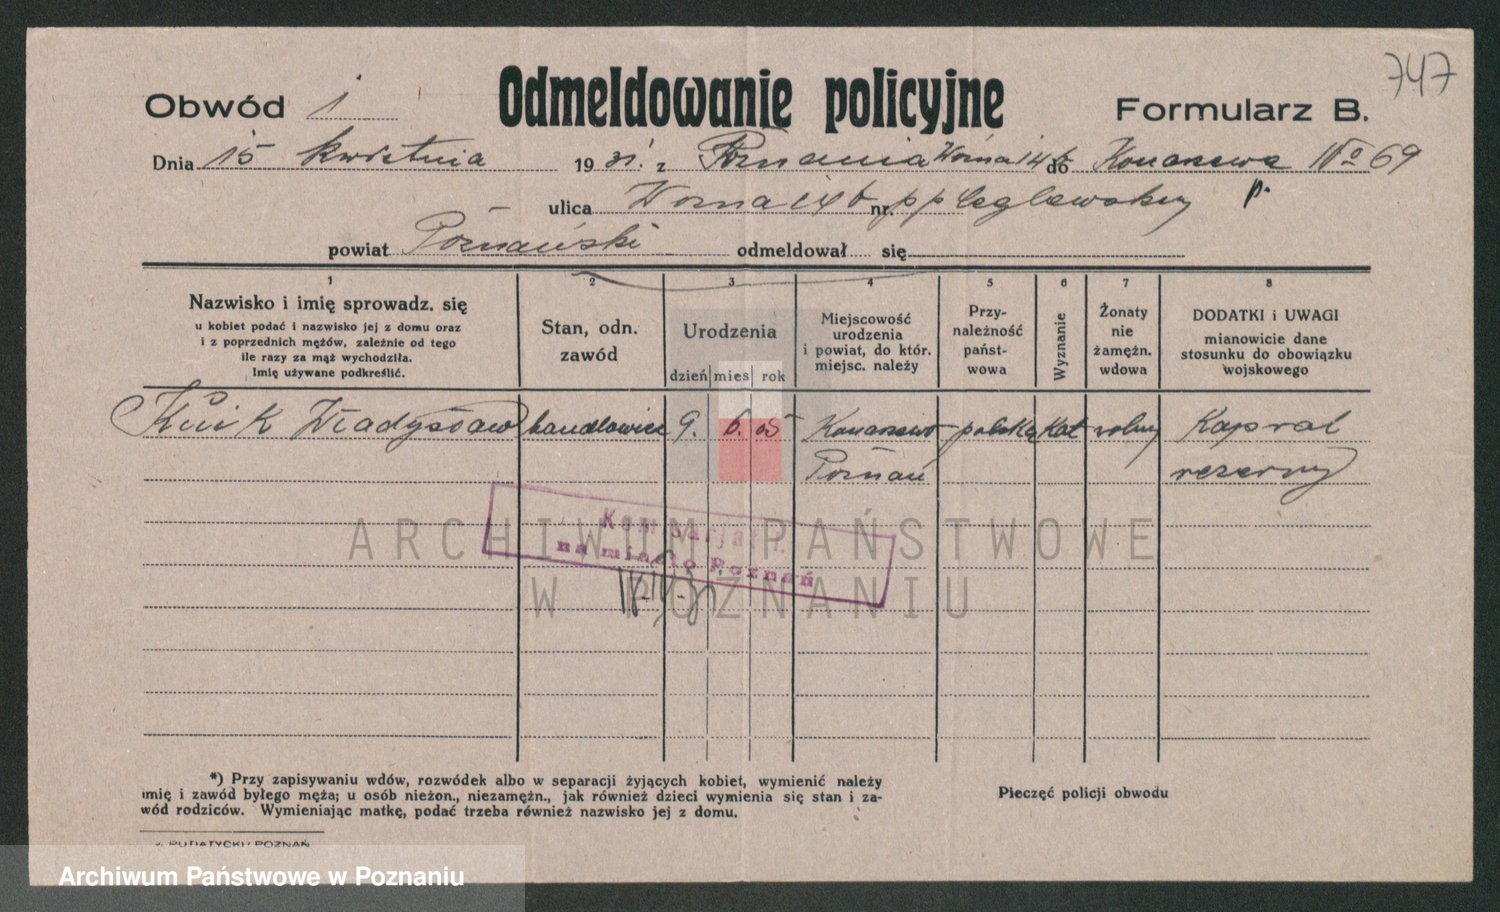 747
Obwód I Odmeldowanie policyjne Formularz B.
Dnia 15 kwietnia 1931. z Poznania Woźna 14b do Konarzewa No 69
ulica Woźna 14b nr. p p Ceglewskiej
powiat Poznański odmeldował się
1 2 3 4 5 6 7 8
Nazwisko i imię sprowadz. się
u kobiet podać i nazwisko jej z domu oraz
i z poprzednich mężów, zależnie od tego
ile razy za mąż wychodziła.
Imię używane podkreślić.
Stan, odn.
zawód
Urodzenia
dzień mies rok
Miejscowość
urodzenia
i powiat, do któr.
miejsc. należy
Przy-
należność
państ-
wowa
Wyznanie
Żonaty
nie
zamężn.
wdowa
DODATKI i UWAGI
mianowicie dane
stosunku do obowiązku
wojskowego
Władysław handlowiec 9. 6. 05 Konarzewo polska kat wolny Kapral
Poznań rezerwy
na miasto Poznań
ARCHIWUM PAŃSTWOWE
W POZNANIU
*) Przy zapisywaniu wdów, rozwódek albo w separacji żyjących kobiet, wymienić należy
imię i zawód byłego męża; u osób nieżon., niezamężn., jak również dzieci wymienia się stan i za-
wód rodziców. Wymieniając matkę, podać trzeba również nazwisko jej z domu.
Pieczęć policji obwodu
PUDATYCKI POZNAŃ
Archiwum Państwowe w Poznaniu